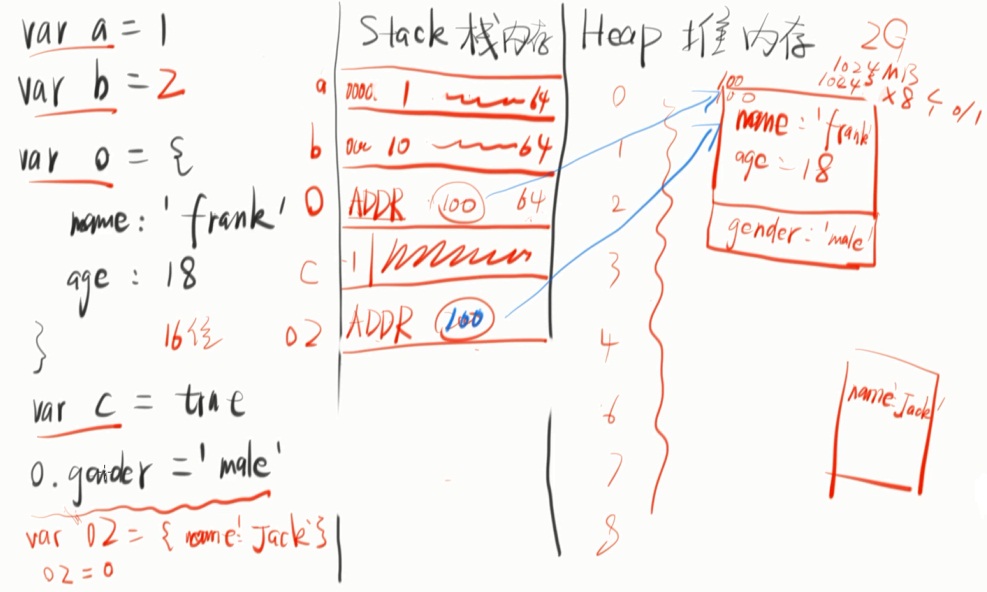 var a = 1
var b = 2
var o = {
name: 'frank'
age : 18
}
16位
var c = true
o.gender = 'male'
var o2 = { name: 'Jack'}
o2 = o
Stack 栈内存
a 0000. 1 64
b 10 64
o ADDR 100 64
c 1
o2 ADDR 100
Heap 堆内存
2G
1024 MB
0
1
2
3
4
6
7
8
100
name : 'frank'
age = 18
gender : 'male'
name: 'Jack'